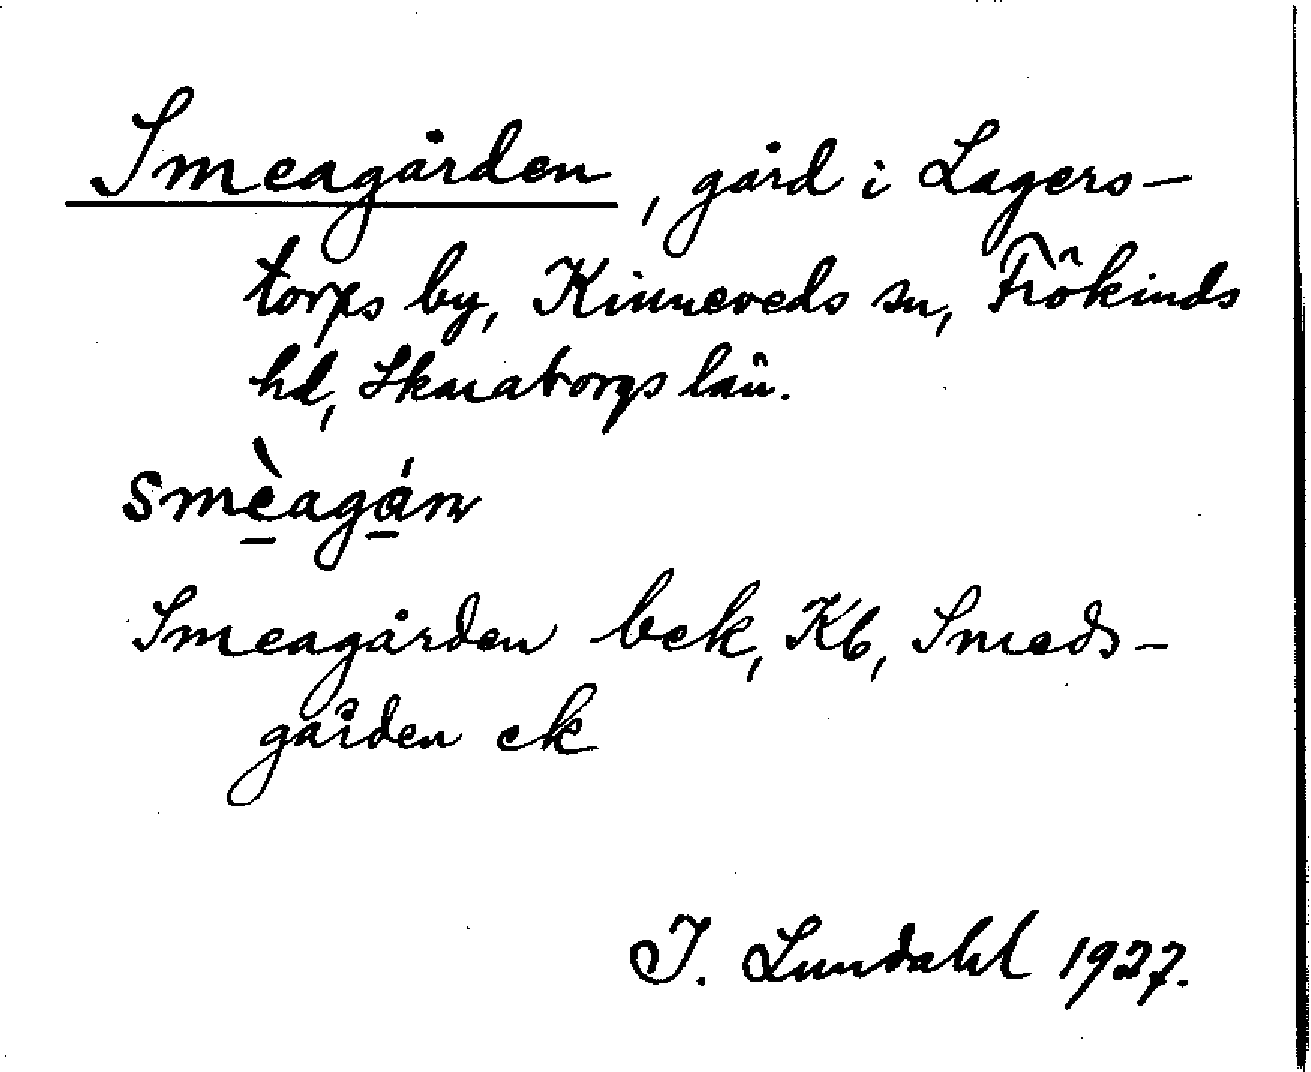 Smeagården, gård i Lagers-
torps by, Kinneveds sn, Frökinds
hd, Skaraborgs län.
smèagán
Smeagården bek, Kb, Smeds-
gården ek
I. Lundahl 1927.